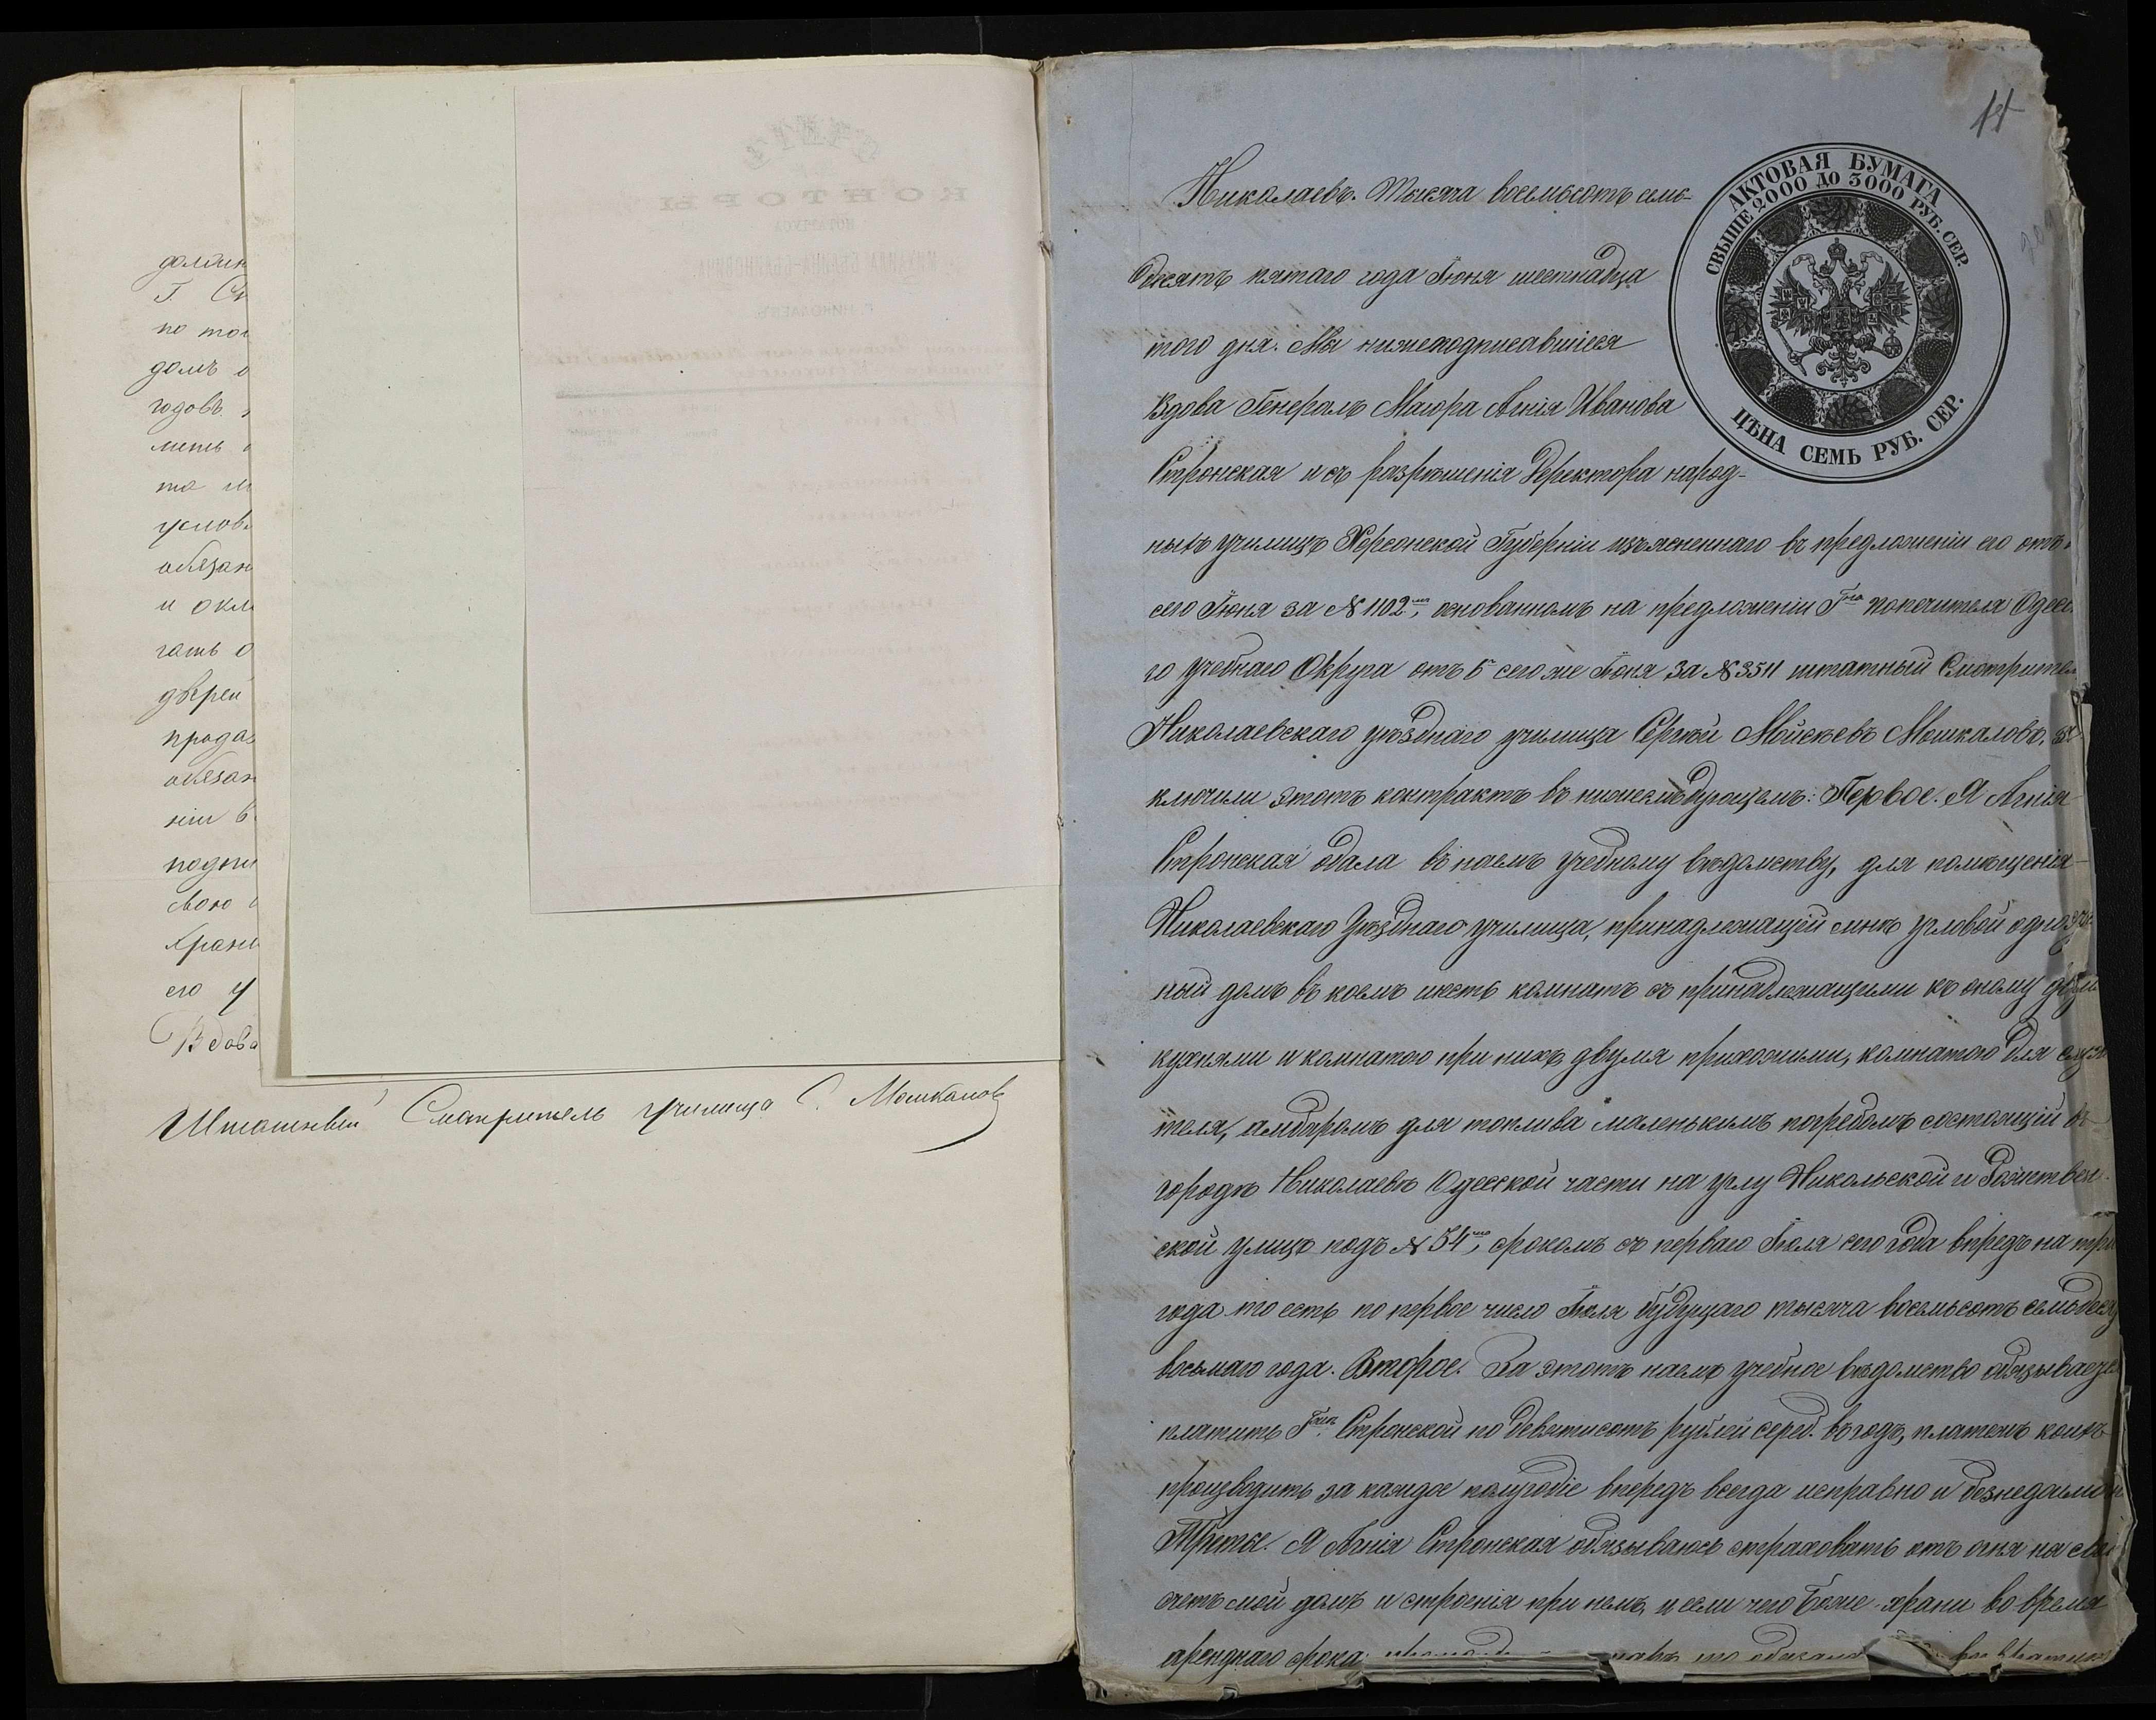 должн
Г. Ст
по тог
домъ
годовъ
меть
та
услов
обязан
и окл
гать о
дверей
прода
обязан
ніи в
подпи
свою
Храни
его у
Вдова
Штатный Смотритель училища С. Машкаловъ
14
АКТОВАЯ БУМАГА
СВЫШЕ 2000 ДО 3000 РУБ. СЕР.
ЦѢНА СЕМЬ РУБ. СЕР.
Николаевъ. Тысяча восемьсотъ семь-
десятъ пятаго года Іюня шестнадца
того дня. Мы нижеподписавшіеся
Вдова Генералъ Маіора Агнія Иванова
Стронская и съ разрѣшенія Деректора народ-
ныхъ училищъ Херсонской Губерніи изъясненнаго въ предложеніи его отъ
сего Іюня за № 1102мъ, основанномъ на предложеніи Гна попечителя Одесс
го учебнаго Округа отъ 6 сего же Іюня за № 3511 штатный Смотрител
Николаевскаго уѣзднаго училища Сергѣй Мойсѣевъ Мошкаловъ, за-
ключили этотъ контрактъ въ нижеслѣдующемъ: Первое. Я Агнія
Стронская одала въ наемъ учебному вѣдомству, для помѣщенія
Николаевскаго Уѣзднаго училища, принадлежащій мнѣ угловой одноэтаж
ный домъ въ коемъ шесть комнатъ съ принадлежащими къ оному двумя
кухнями и комнатою при нихъ, двумя прихожими, комнатою для служи
теля, амбаромъ для топлива маленькимъ погребомъ состоящій въ
городѣ Николаевѣ Одесской части на углу Никольской и Рожествен
ской улицъ подъ № 54мъ, срокомъ съ перваго Іюля сего года впредь на три
года то есть по первое число Іюля будущаго тысяча восемьсотъ семьдеся
восьмаго года. Второе. За этотъ наемъ учебное вѣдомство обязывается
платить Гжѣ Стронской по девятисотъ рублей сереб. въ годъ, платежъ коихъ
производить за каждое полугодіе впередъ всегда исправно и безнедоимо
Третье. Я Агнія Стронская обязываюсь страховать отъ огня на свой
счетъ мой домъ и строенія при немъ, и если чего Боже храни во время
аренднаго срока